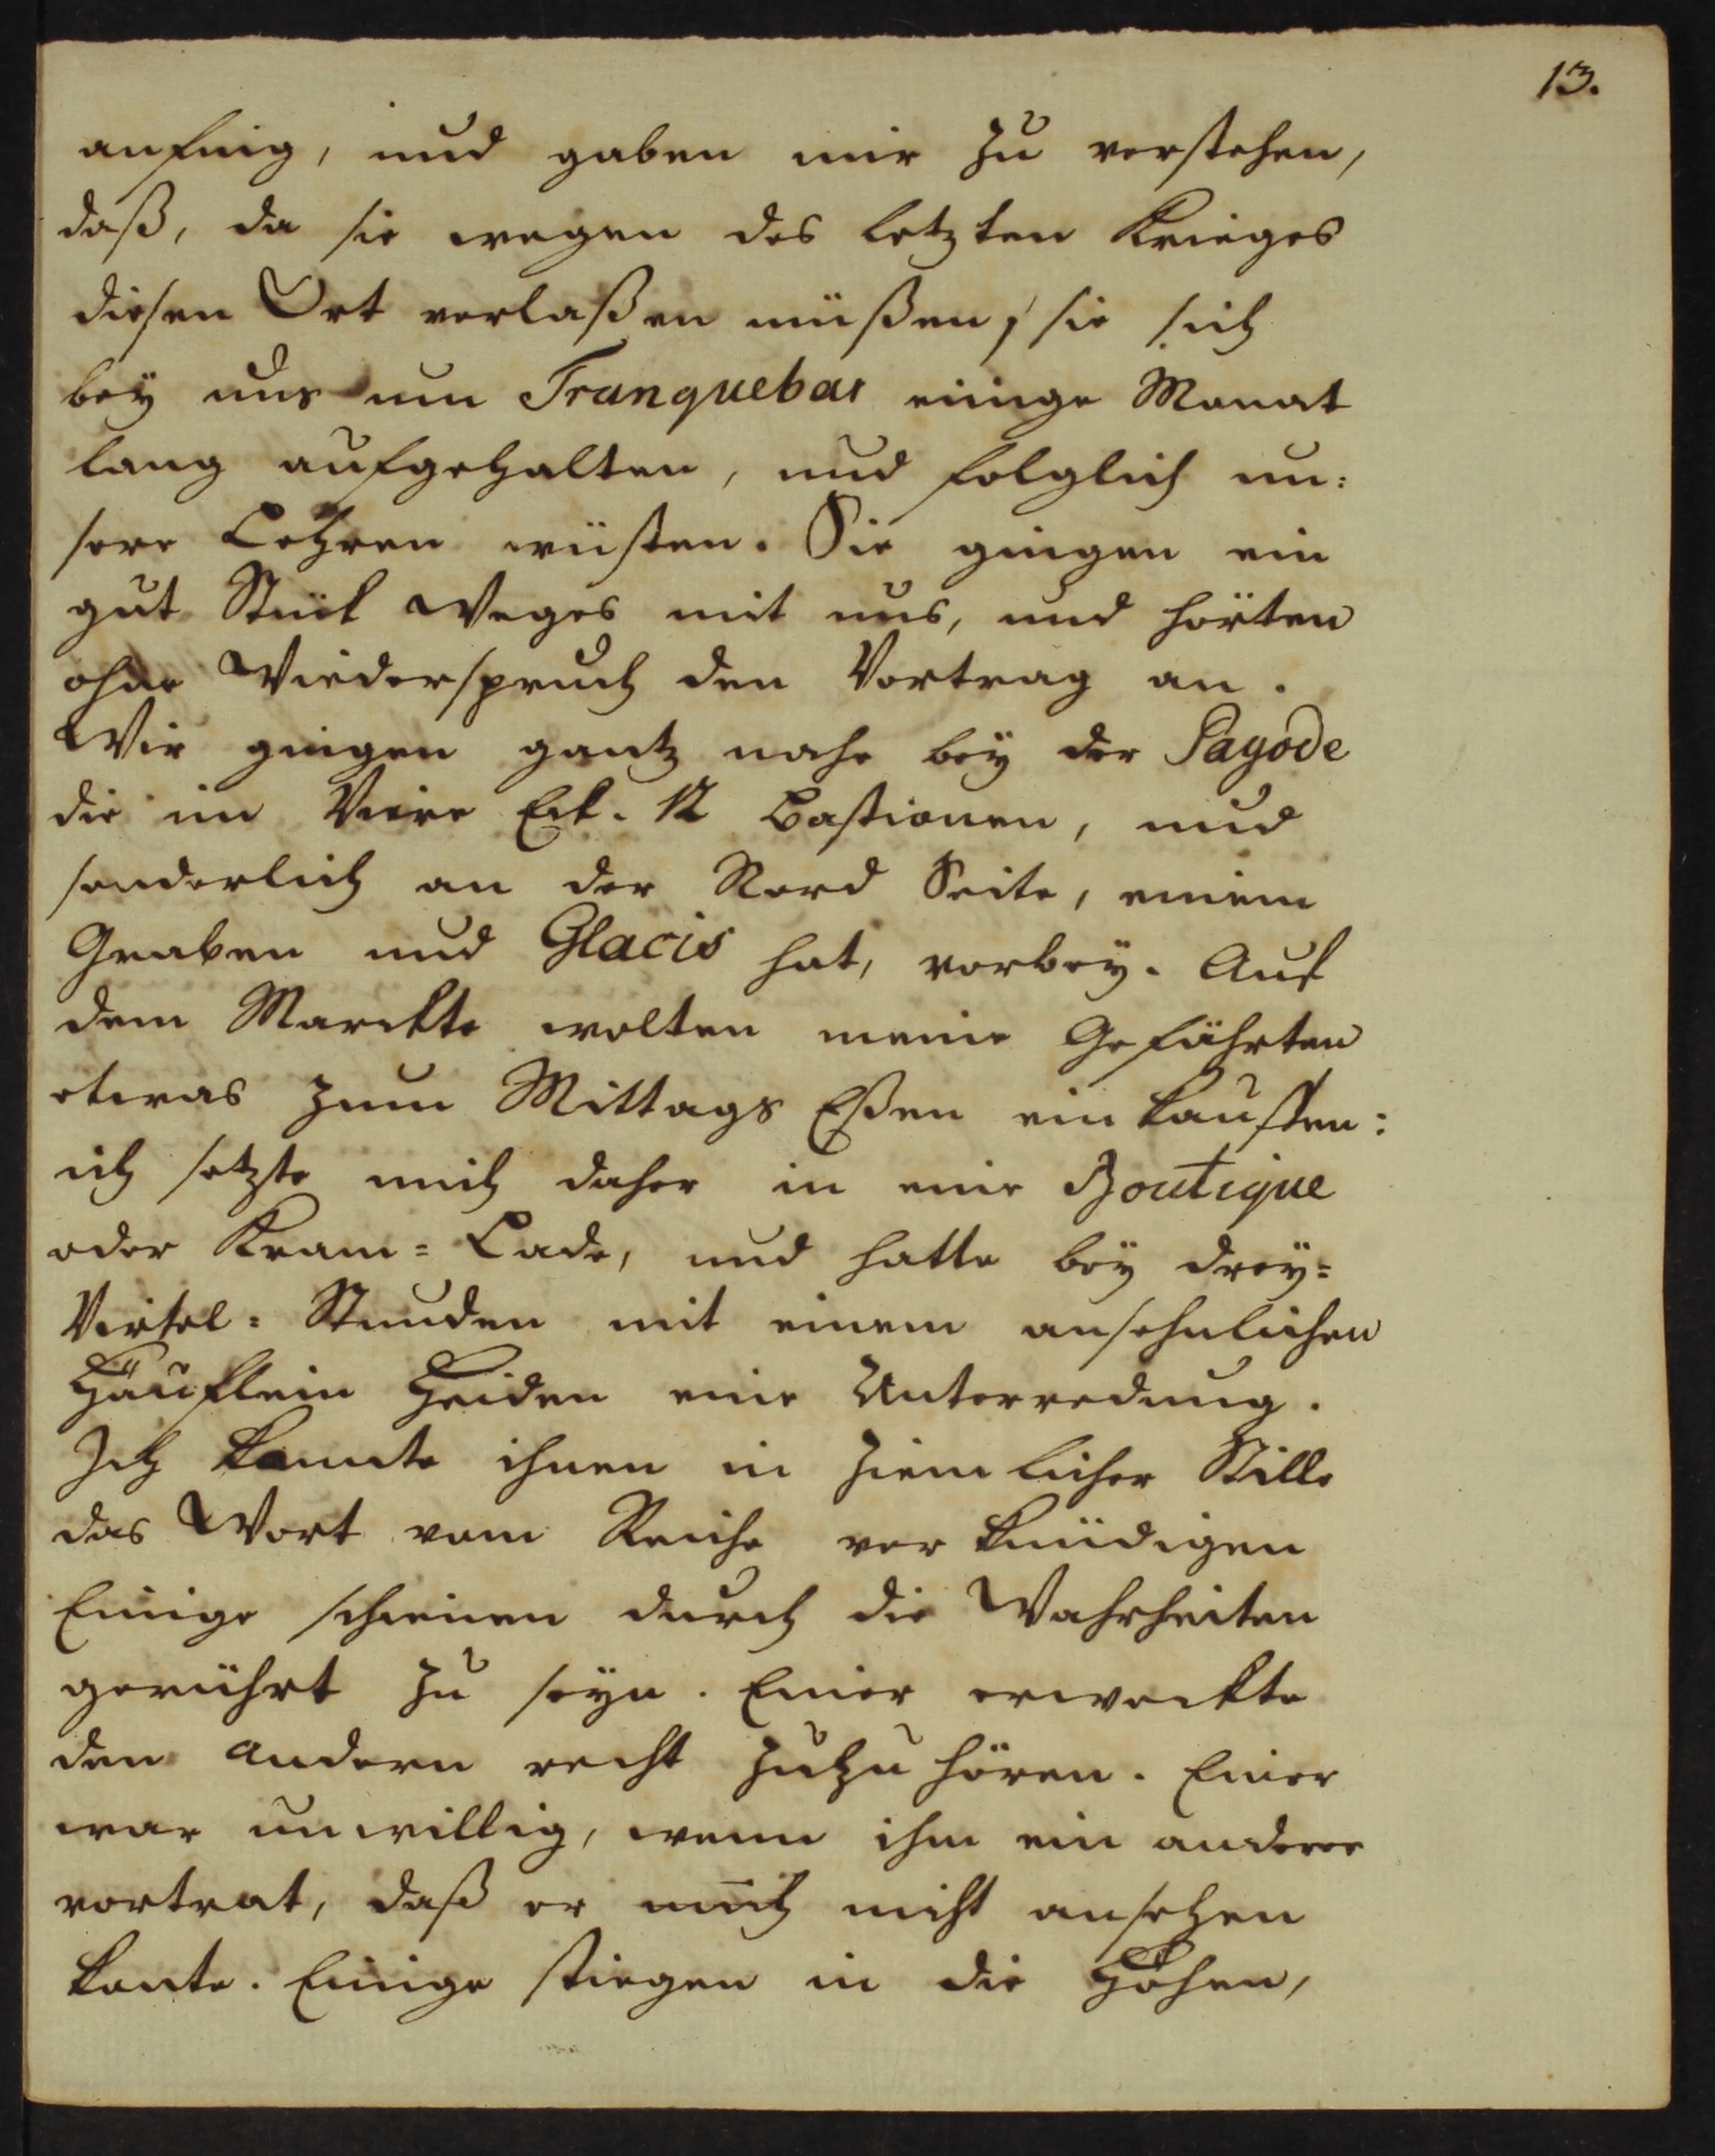 13.
anfing, und gaben mir zu verstehen,
daß, da sie wegen des letzten Krieges
diesen Ort verlaßen müßen, sie sich
bey uns um Tranquebar einige Monat
lang aufgehalten, und folglich un:
sere Lehren wüsten. Sie gingen ein
gut Stük Weges mit uns, und hörten
ohne Wiederspruch den Vortrag an.
Wir gingen gantz nahe bey der Pagode
die im Viere Eck. 12 Bastionen, und
sonderlich an der Nord Seite, einem
Graben und Glacis hat, vorbey. Auf
dem Marckte wolten meine Gefährten
etwas zum Mittags Eßen ein kauffen:
ich setzte mich daher in eine Boutique
oder Kram= Lade, und hatte bey drey=
Viertel= Stunden mit einem ansehnlichen
Häuflein Heiden eine Unterredung.
Ich konnte ihnen in ziemlicher Stille
das Wort vom Reiche ver kündigen
Einige schienen durch die Wahrheiten
gerührt zu seyn. Einer erweckte
den andern recht zuzu hören. Einer
war unwillig, wenn ihm ein anderer
vortrat, daß er mich nicht ansehen
konte. Einige stiegen in die Höhen,